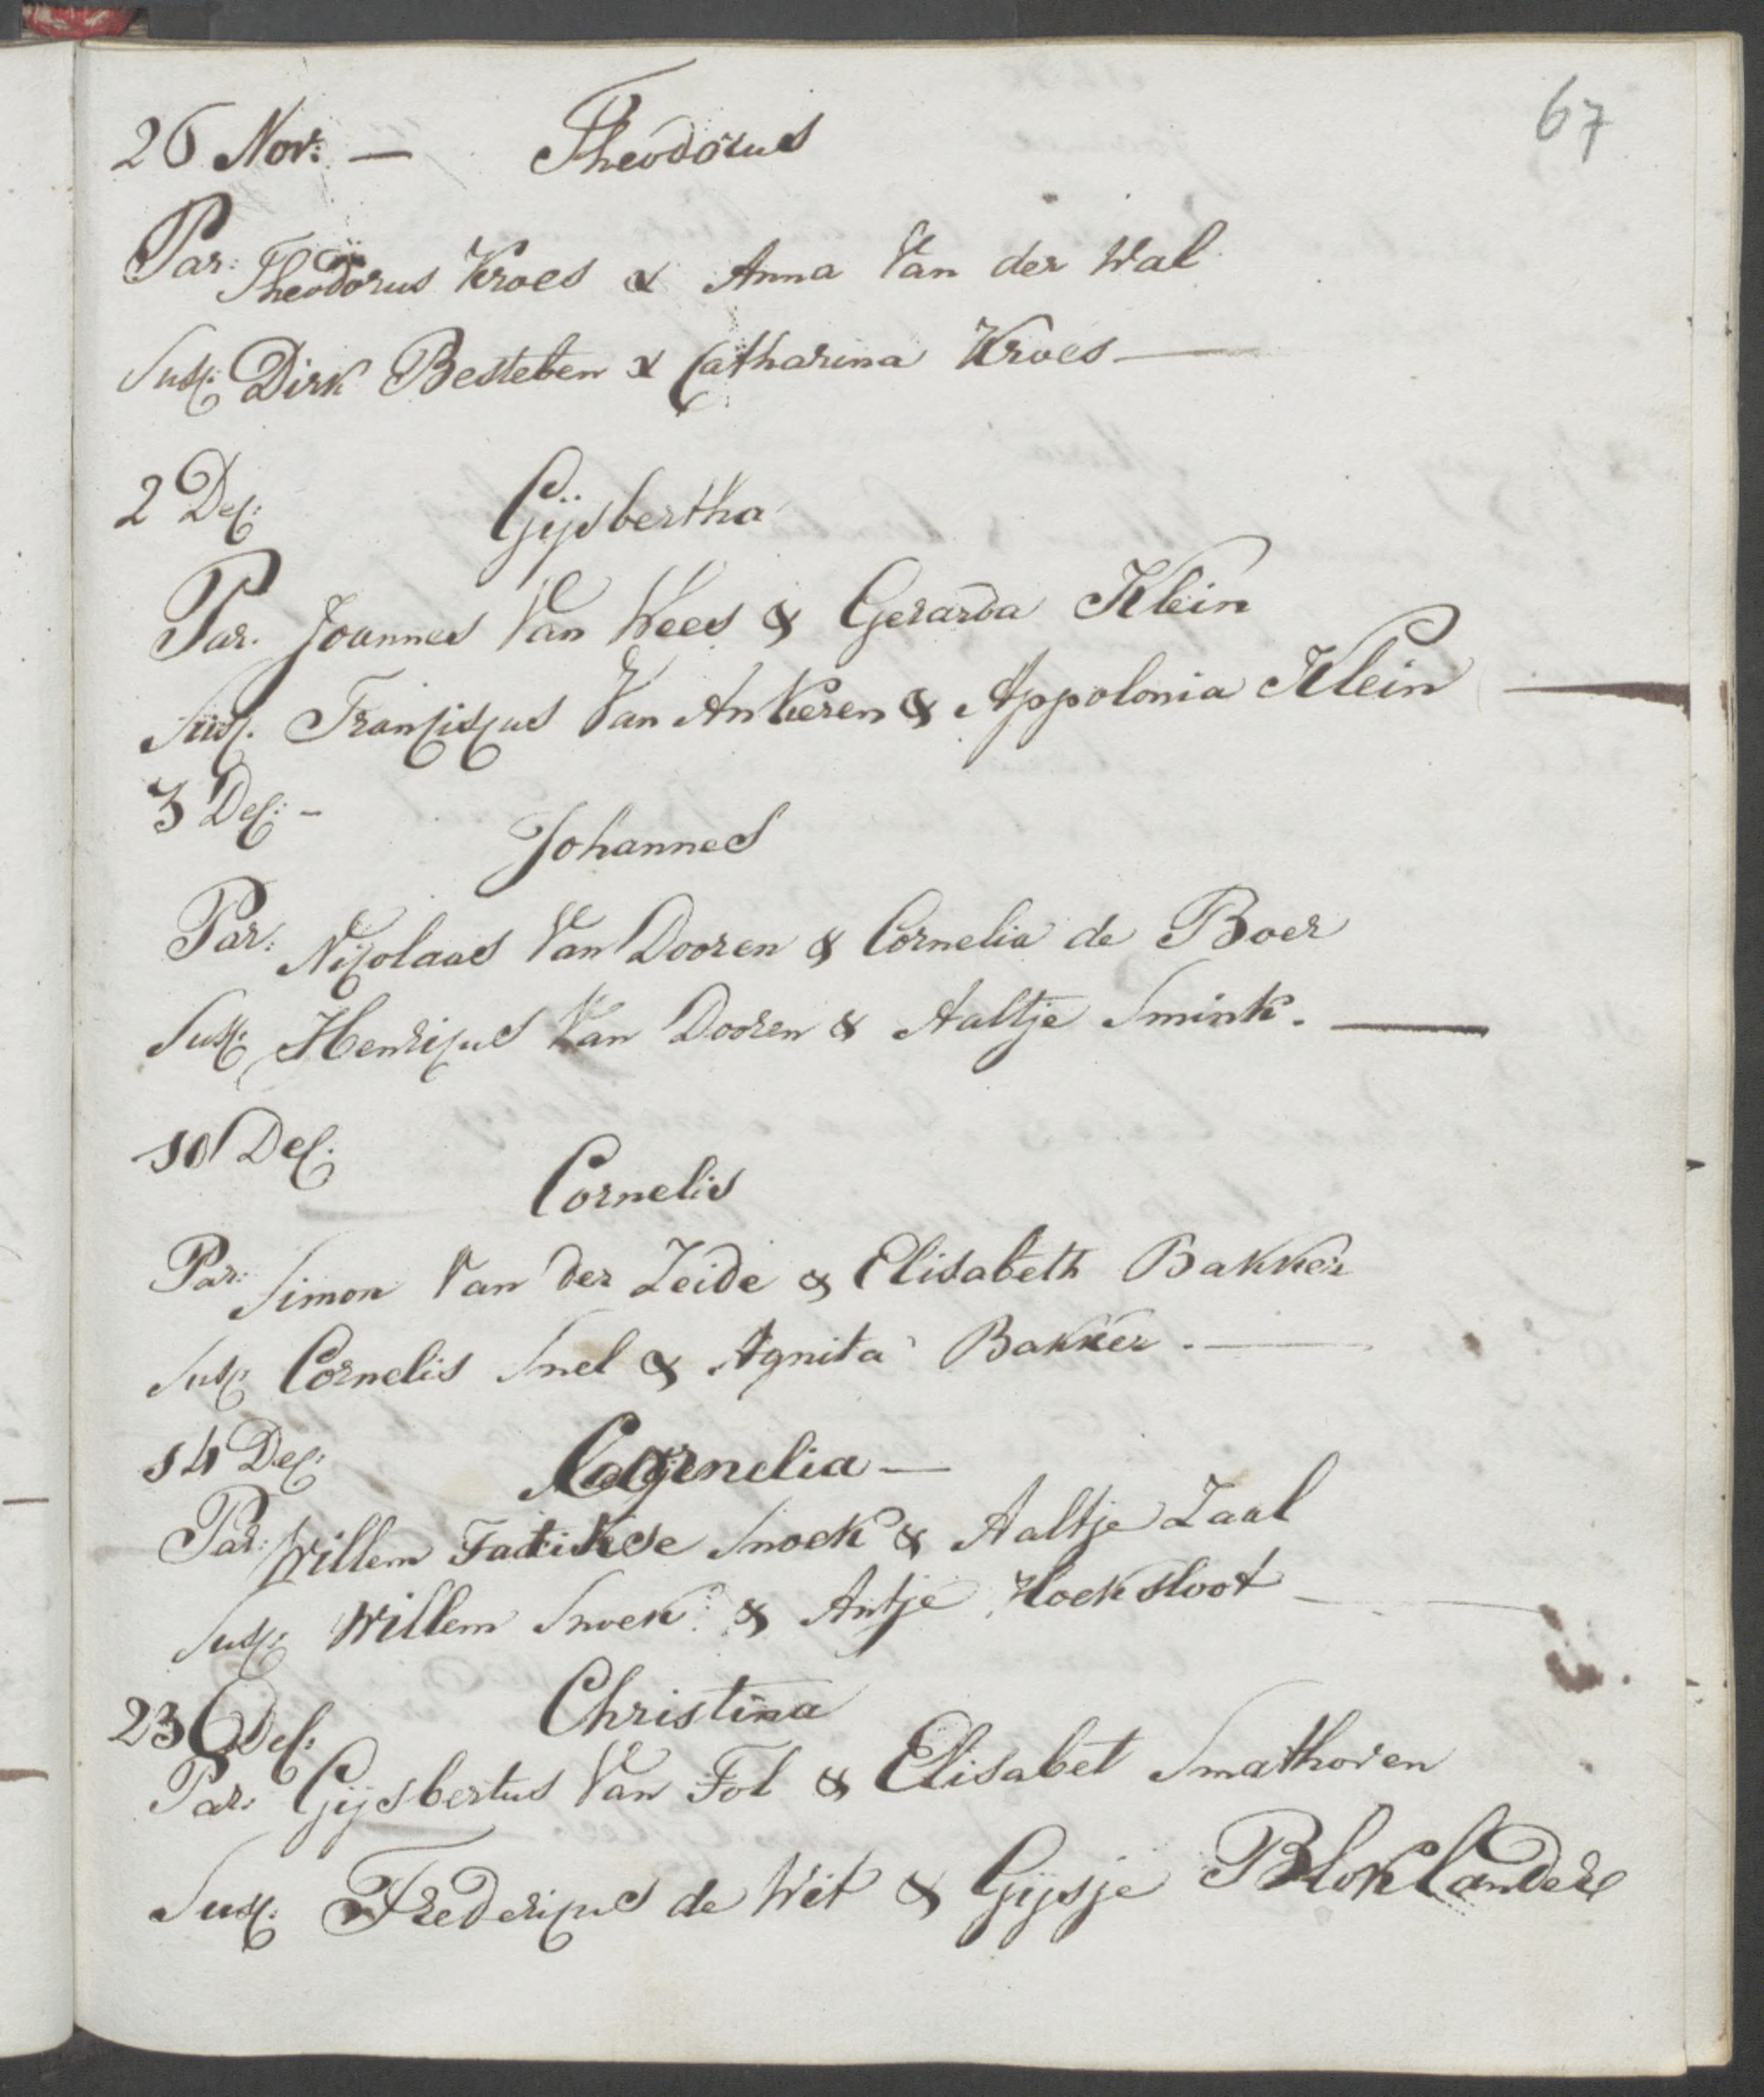 67
26 Nov: — Theodorus
Par: Theodorus Kroes & Anna Van der Wal
Susc: Dirk Besteben & Catharina Kroes —
2 Dec:
Gijsbertha
Par. Joannes Van Wees & Gerarda Klein
Susc. Franciscus Van Ankeren & Appolonia Klein —
3 Dec: -
Johannes
Par: Nicolaas Van Dooren & Cornelia de Boer
Susc. Henricus Van Dooren & Aaltje Smink. —
10 Dec:
Cornelis
Par: Simon Van der Zeide & Elisabeth Bakker
Susc: Cornelis Snel & Agnita Bakker. —
14 Dec:
Cornelia —
Par: Willem Snoek & Aaltje Zaal
Susc: Willem Snoek & Antje Hoeksloot —
23 Dec: Christina
Par: Gijsbertus Van Fol & Elisabet Smathoven
Susc. Fredericus de Wit & Gijsje Bloklander